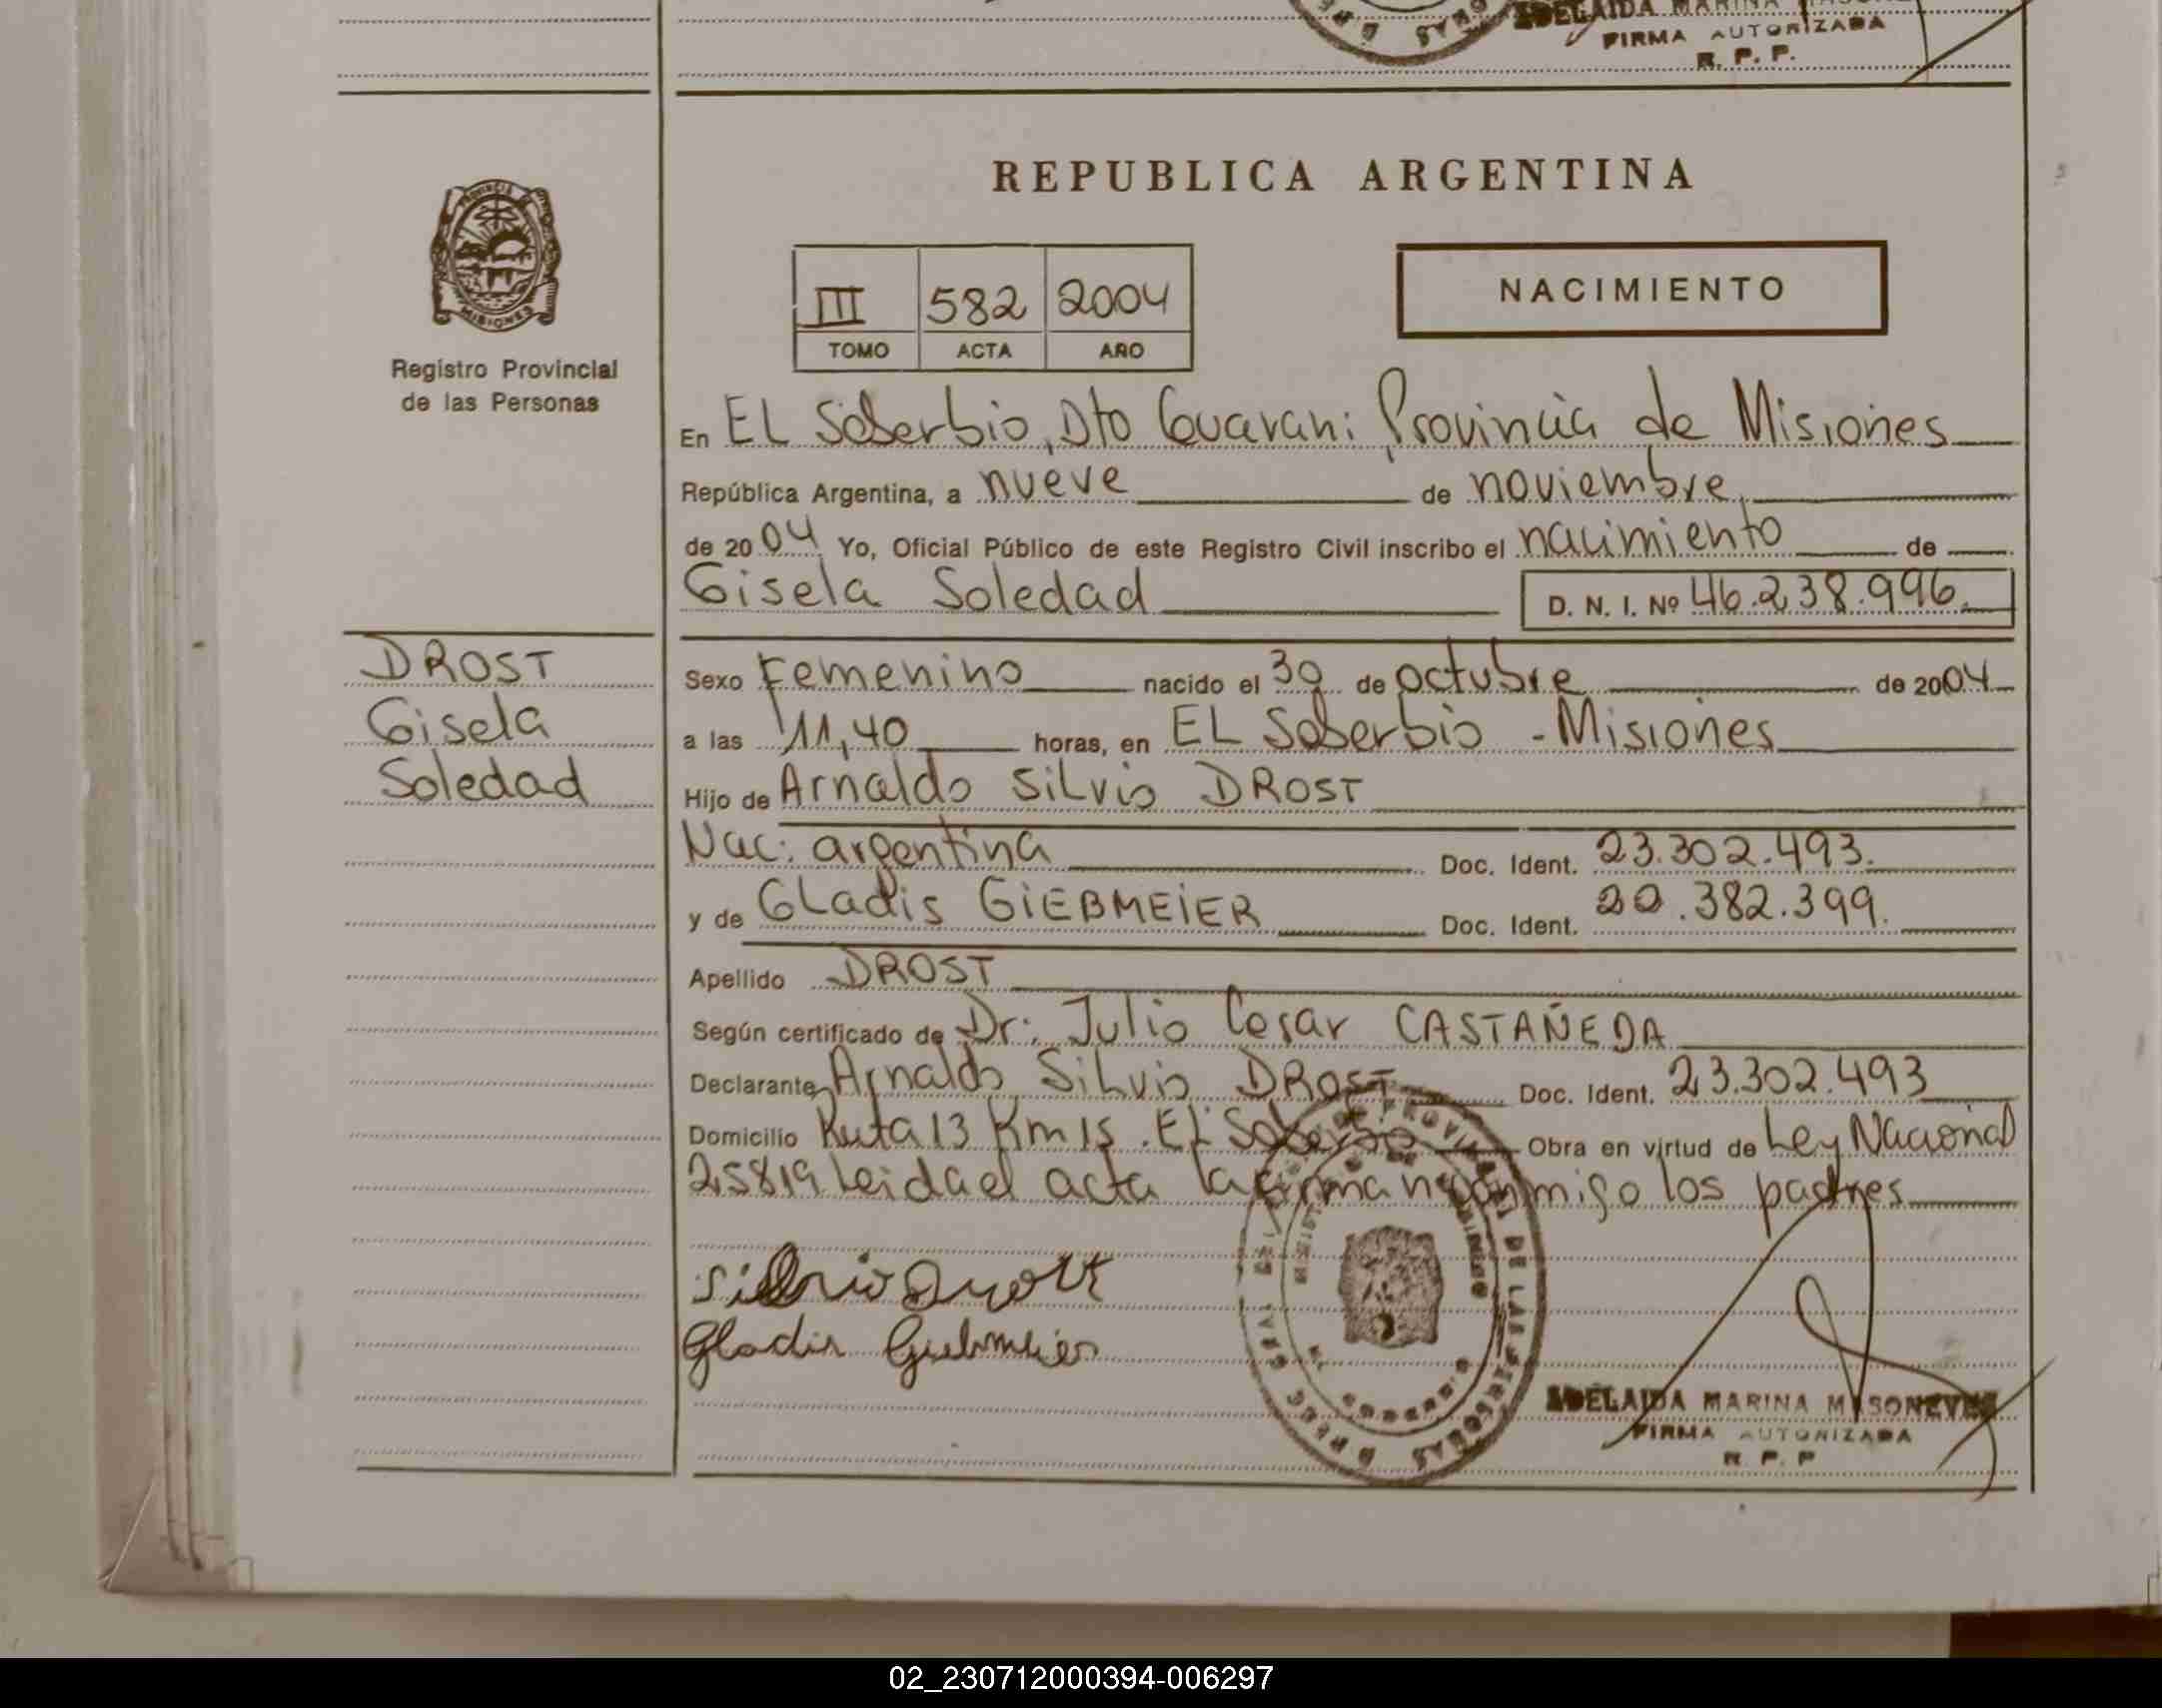 ADELAIDA MARINA
FIRMA AUTORIZADA
R. P. P.
REPUBLICA ARGENTINA
PROVINCIA
MISIONES
Registro Provincial
de las Personas
III 582 2004
TOMO ACTA AÑO
NACIMIENTO
En EL Soberbio, Dto Guarani Provincia de Misiones
República Argentina, a nueve de noviembre,
de 2004 Yo, Oficial Público de este Registro Civil inscribo el nacimiento de
Gisela Soledad D. N. I. Nº 46.238.996.
DROST
Gisela
Soledad
Sexo Femenino nacido el 30 de octubre de 2004
a las 11,40 horas, en EL Soberbio - Misiones
Hijo de Arnaldo Silvio DROST
Nac: argentina Doc. Ident. 23.302.493.
y de GLadis GiEBMEiER Doc. Ident. 20.382.399.
Apellido DROST
Según certificado de Dr: Julio Cesar CASTAÑEDA
Declarante Arnaldo Silvio DROST Doc. Ident. 23.302.493
Domicilio Ruta 13 Km 15. EL Soberbio Obra en virtud de Ley Nacional
25819 leida el acta la firman conmigo los padres
Silvio Drost
Gladis Giebmeier
ADELAIDA MARINA MASONEVES
FIRMA AUTORIZADA
R. P. P
02_230712000394-006297